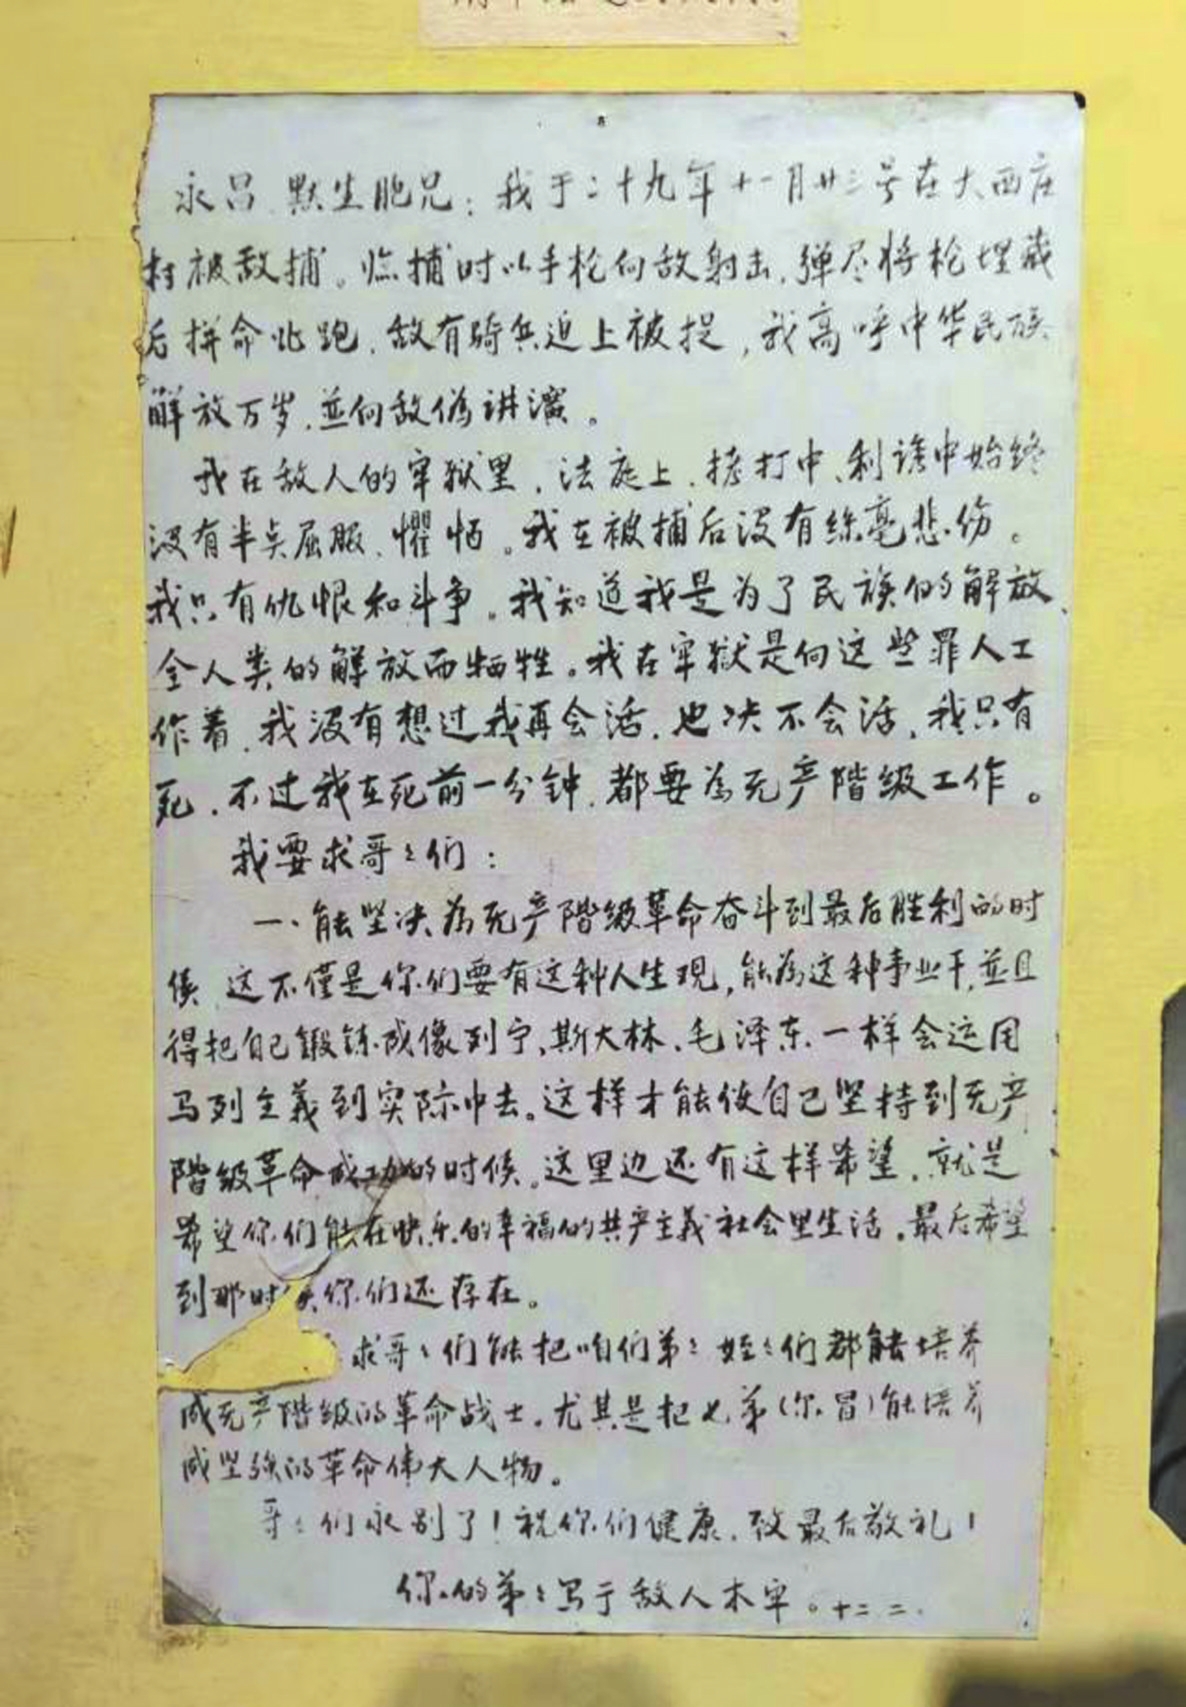 永吕、默生胞兄：我于二十九年十一月廿三号在大西庄
村被敌捕。临捕时以手枪向敌射击，弹尽将枪埋藏
后拼命北跑，敌有骑兵追上被捉，我高呼中华民族
解放万岁，並向敌偽讲演。
我在敌人的牢獄里、法庭上、拷打中、利誘中始终
没有半点屈服、懼怕。我在被捕后没有絲毫悲伤。
我只有仇恨和斗争。我知道我是为了民族的解放、
全人类的解放而牺牲。我在牢獄是向这些罪人工
作着，我没有想过我再会活，也决不会活，我只有
死，不过我在死前一分钟，都要為无产階级工作。
我要求哥〻们：
一、能坚决為无产階级革命奋斗到最后胜利的时
候，这不僅是你们要有这种人生观，能為这种事业干，並且
得把自己鍛鍊成像列宁、斯大林、毛泽东一样会运用
马列主義到实际中去。这样才能使自己坚持到无产
階级革命成功的时候。这里边还有这样希望，就是
希望你们能在快乐的幸福的共产主義社会里生活。最后希望
到那时候你们还存在。
求哥〻们能把咱们弟〻姪〻们都能培养
成无产階级的革命战士。尤其是把七弟（尔昌）能培养
成坚強的革命偉大人物。
哥〻们永别了！祝你们健康，致最后敬礼！
你的弟〻写于敌人木牢。十二 二